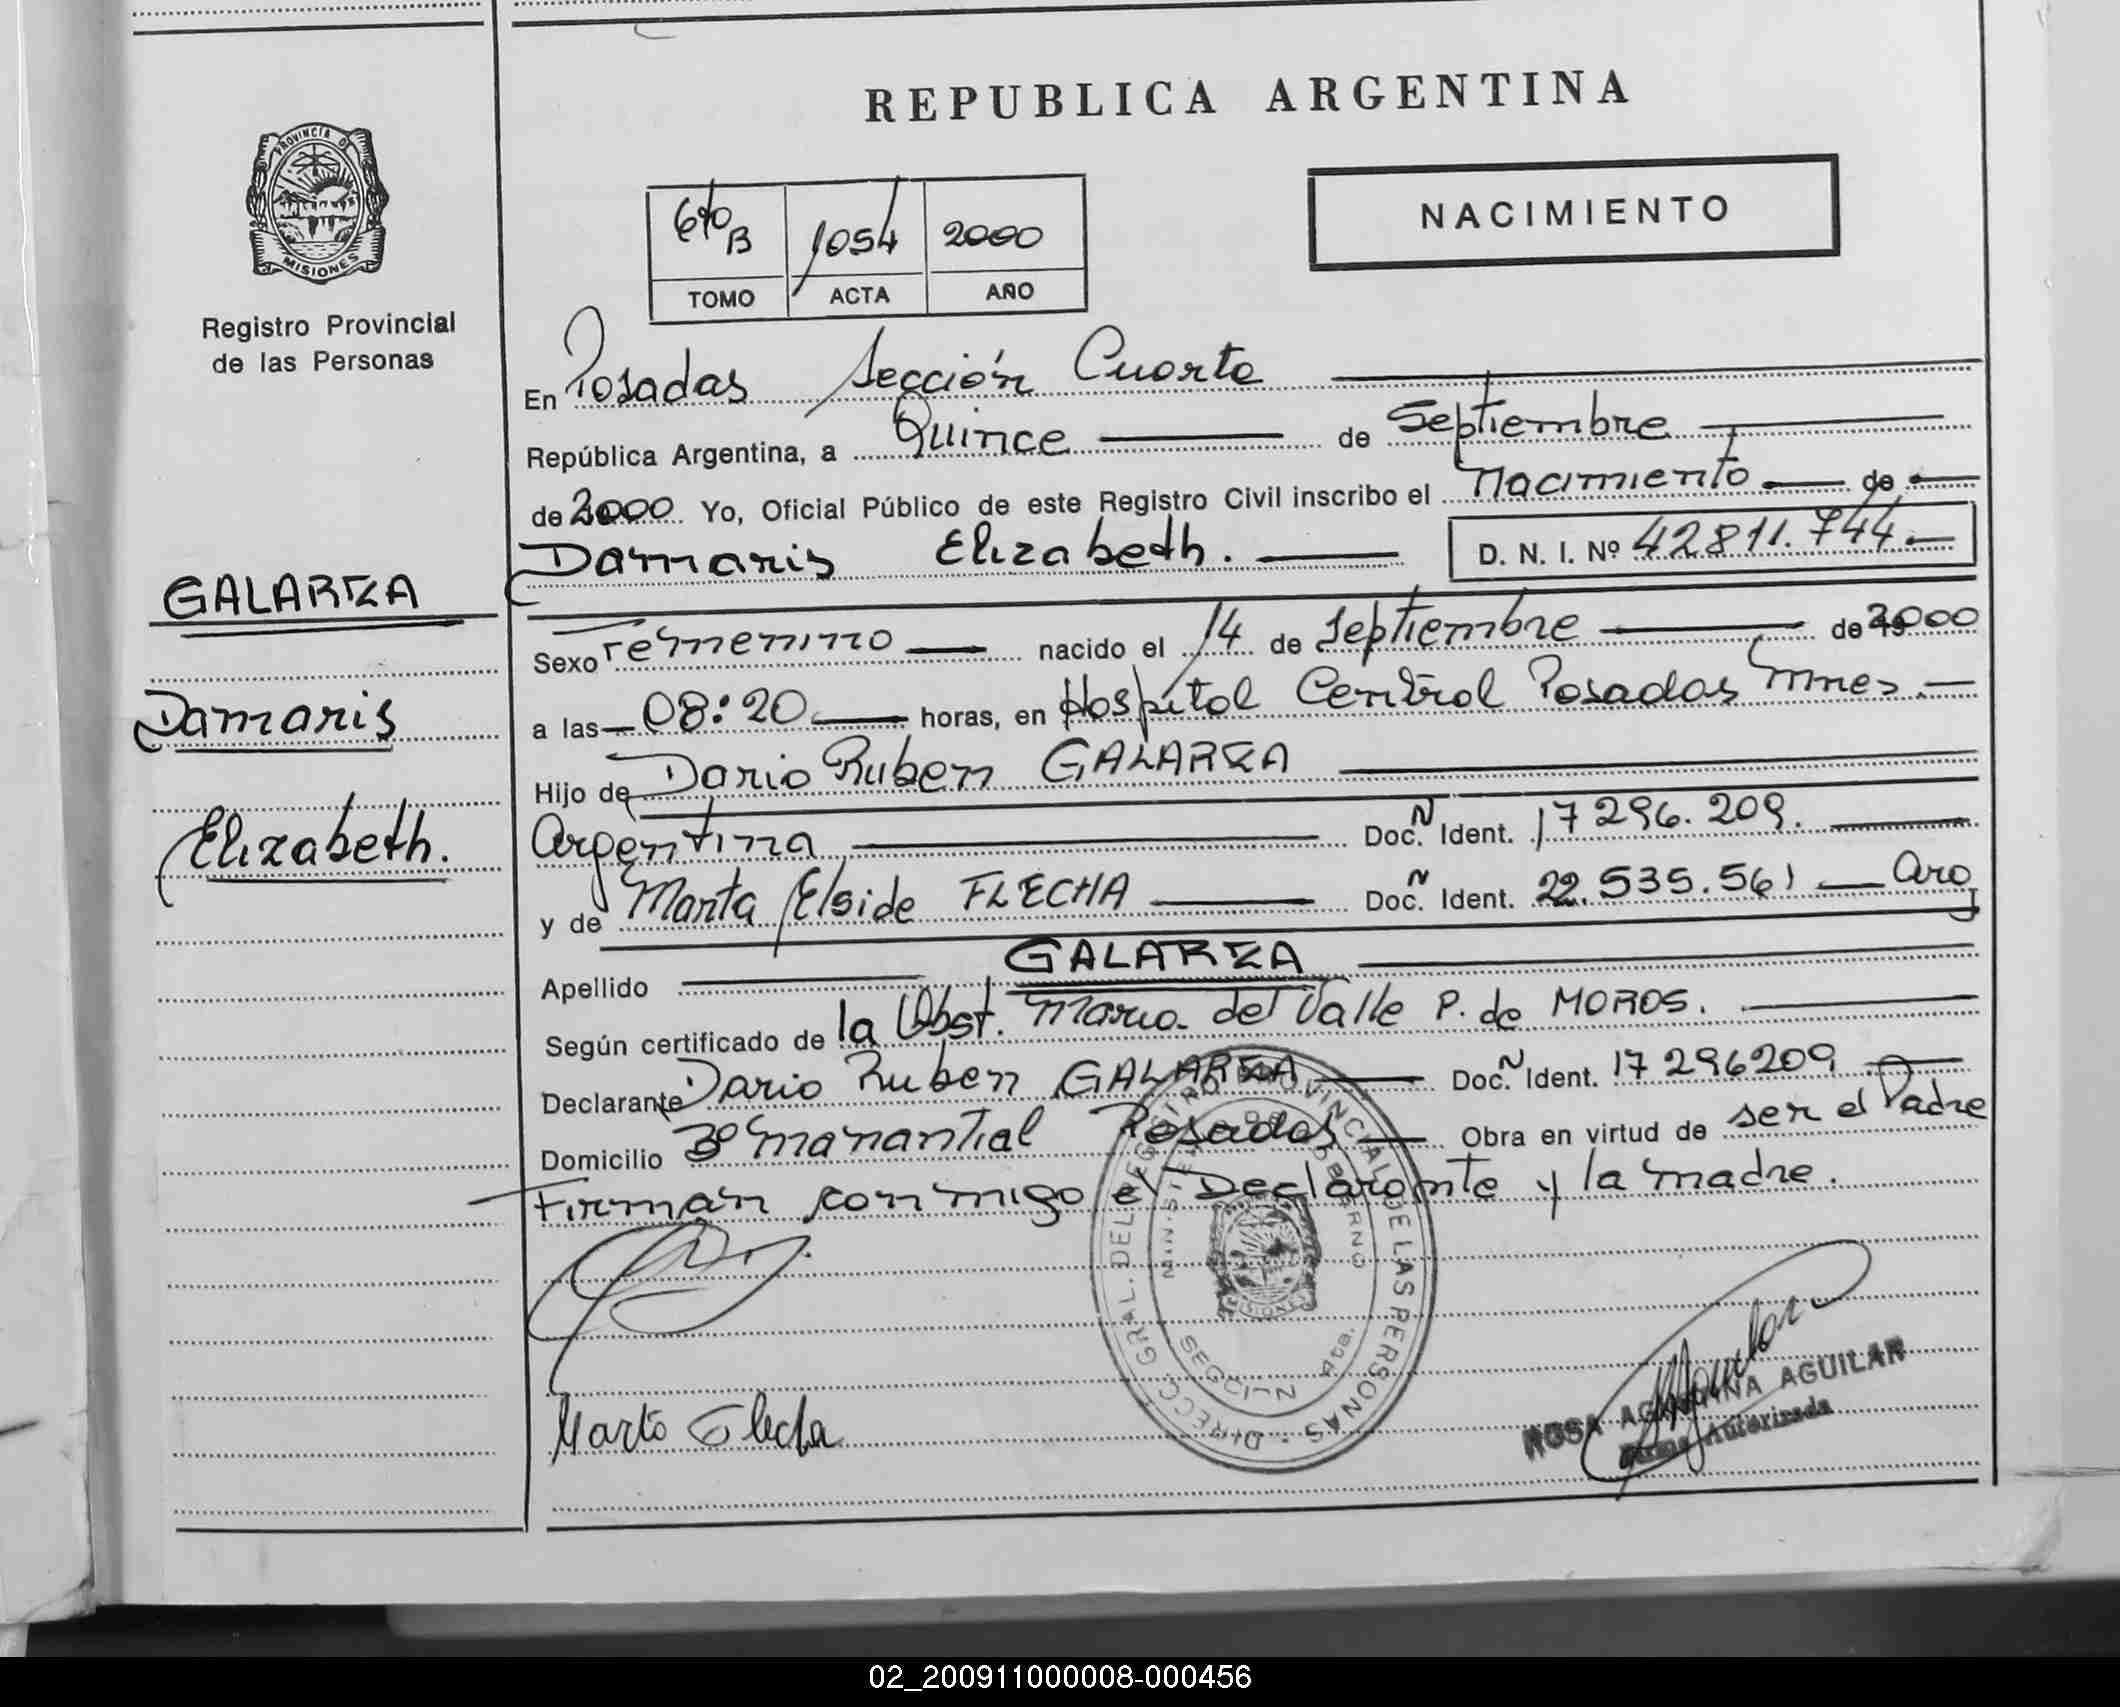 REPUBLICA ARGENTINA
PROVINCIA DE
MISIONES
Registro Provincial
de las Personas
NACIMIENTO
B 1054 2000
TOMO ACTA AÑO
En Posadas Sección Cuarta
República Argentina, a Quince de Septiembre
de 2000 Yo, Oficial Público de este Registro Civil inscribo el Nacimiento de
Damaris Elizabeth. D. N. I. Nº 42811.744.
GALARZA
Damaris
Elizabeth.
Sexo Femenino nacido el 14 de Septiembre de 2000
a las 08:20 horas, en Hospital Central Posadas Mnes.
Hijo de Dario Ruben GALARZA
Argentina Doc. N Ident. 17296.209.
y de Marta Elside FLECHA Doc. N Ident. 22.535.561 Arg
Apellido GALARZA
Según certificado de la Obst. Maria del Valle P. de MOROS.
Declarante Dario Ruben GALARZA Doc. N Ident. 17296209
Domicilio Bº Manantial Posadas Obra en virtud de ser el Padre
Firman conmigo el Declarante y la madre.
DIRECC. GRAL. DEL REGISTRO PROVINCIAL DE LAS PERSONAS
MINISTERIO DE GOBIERNO
MISIONES
SECCION 4ta.
Marta Flecha
ROSA AGUILAR
Firma Autorizada
02_200911000008-000456